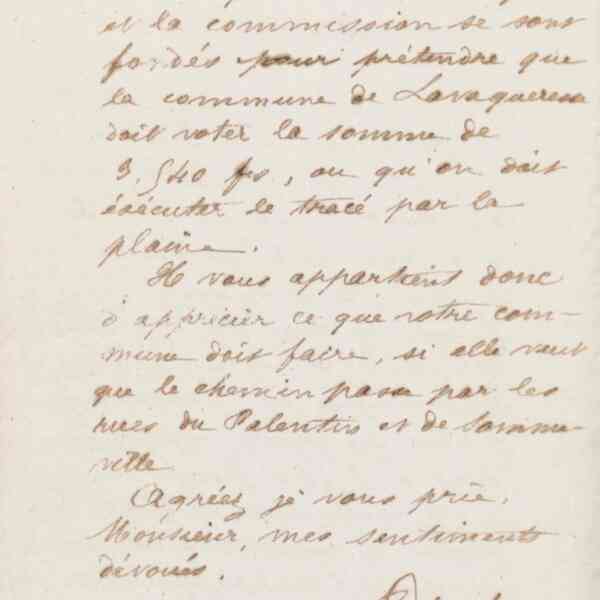 et la commission se sont
fondés pour prétendre que
la commune de Lavaqueresse
doit voter la somme de
3.540 fs, ou qu'on doit
éxécuter le tracé par la
plaine.
Il vous appartient donc
d'apprécier ce que votre com-
mune doit faire, si elle veut
que le chemin passe par les
rues du Palentin et de Somme-
ville
Agréez je vous prie,
Monsieur, mes sentiments
dévoués.